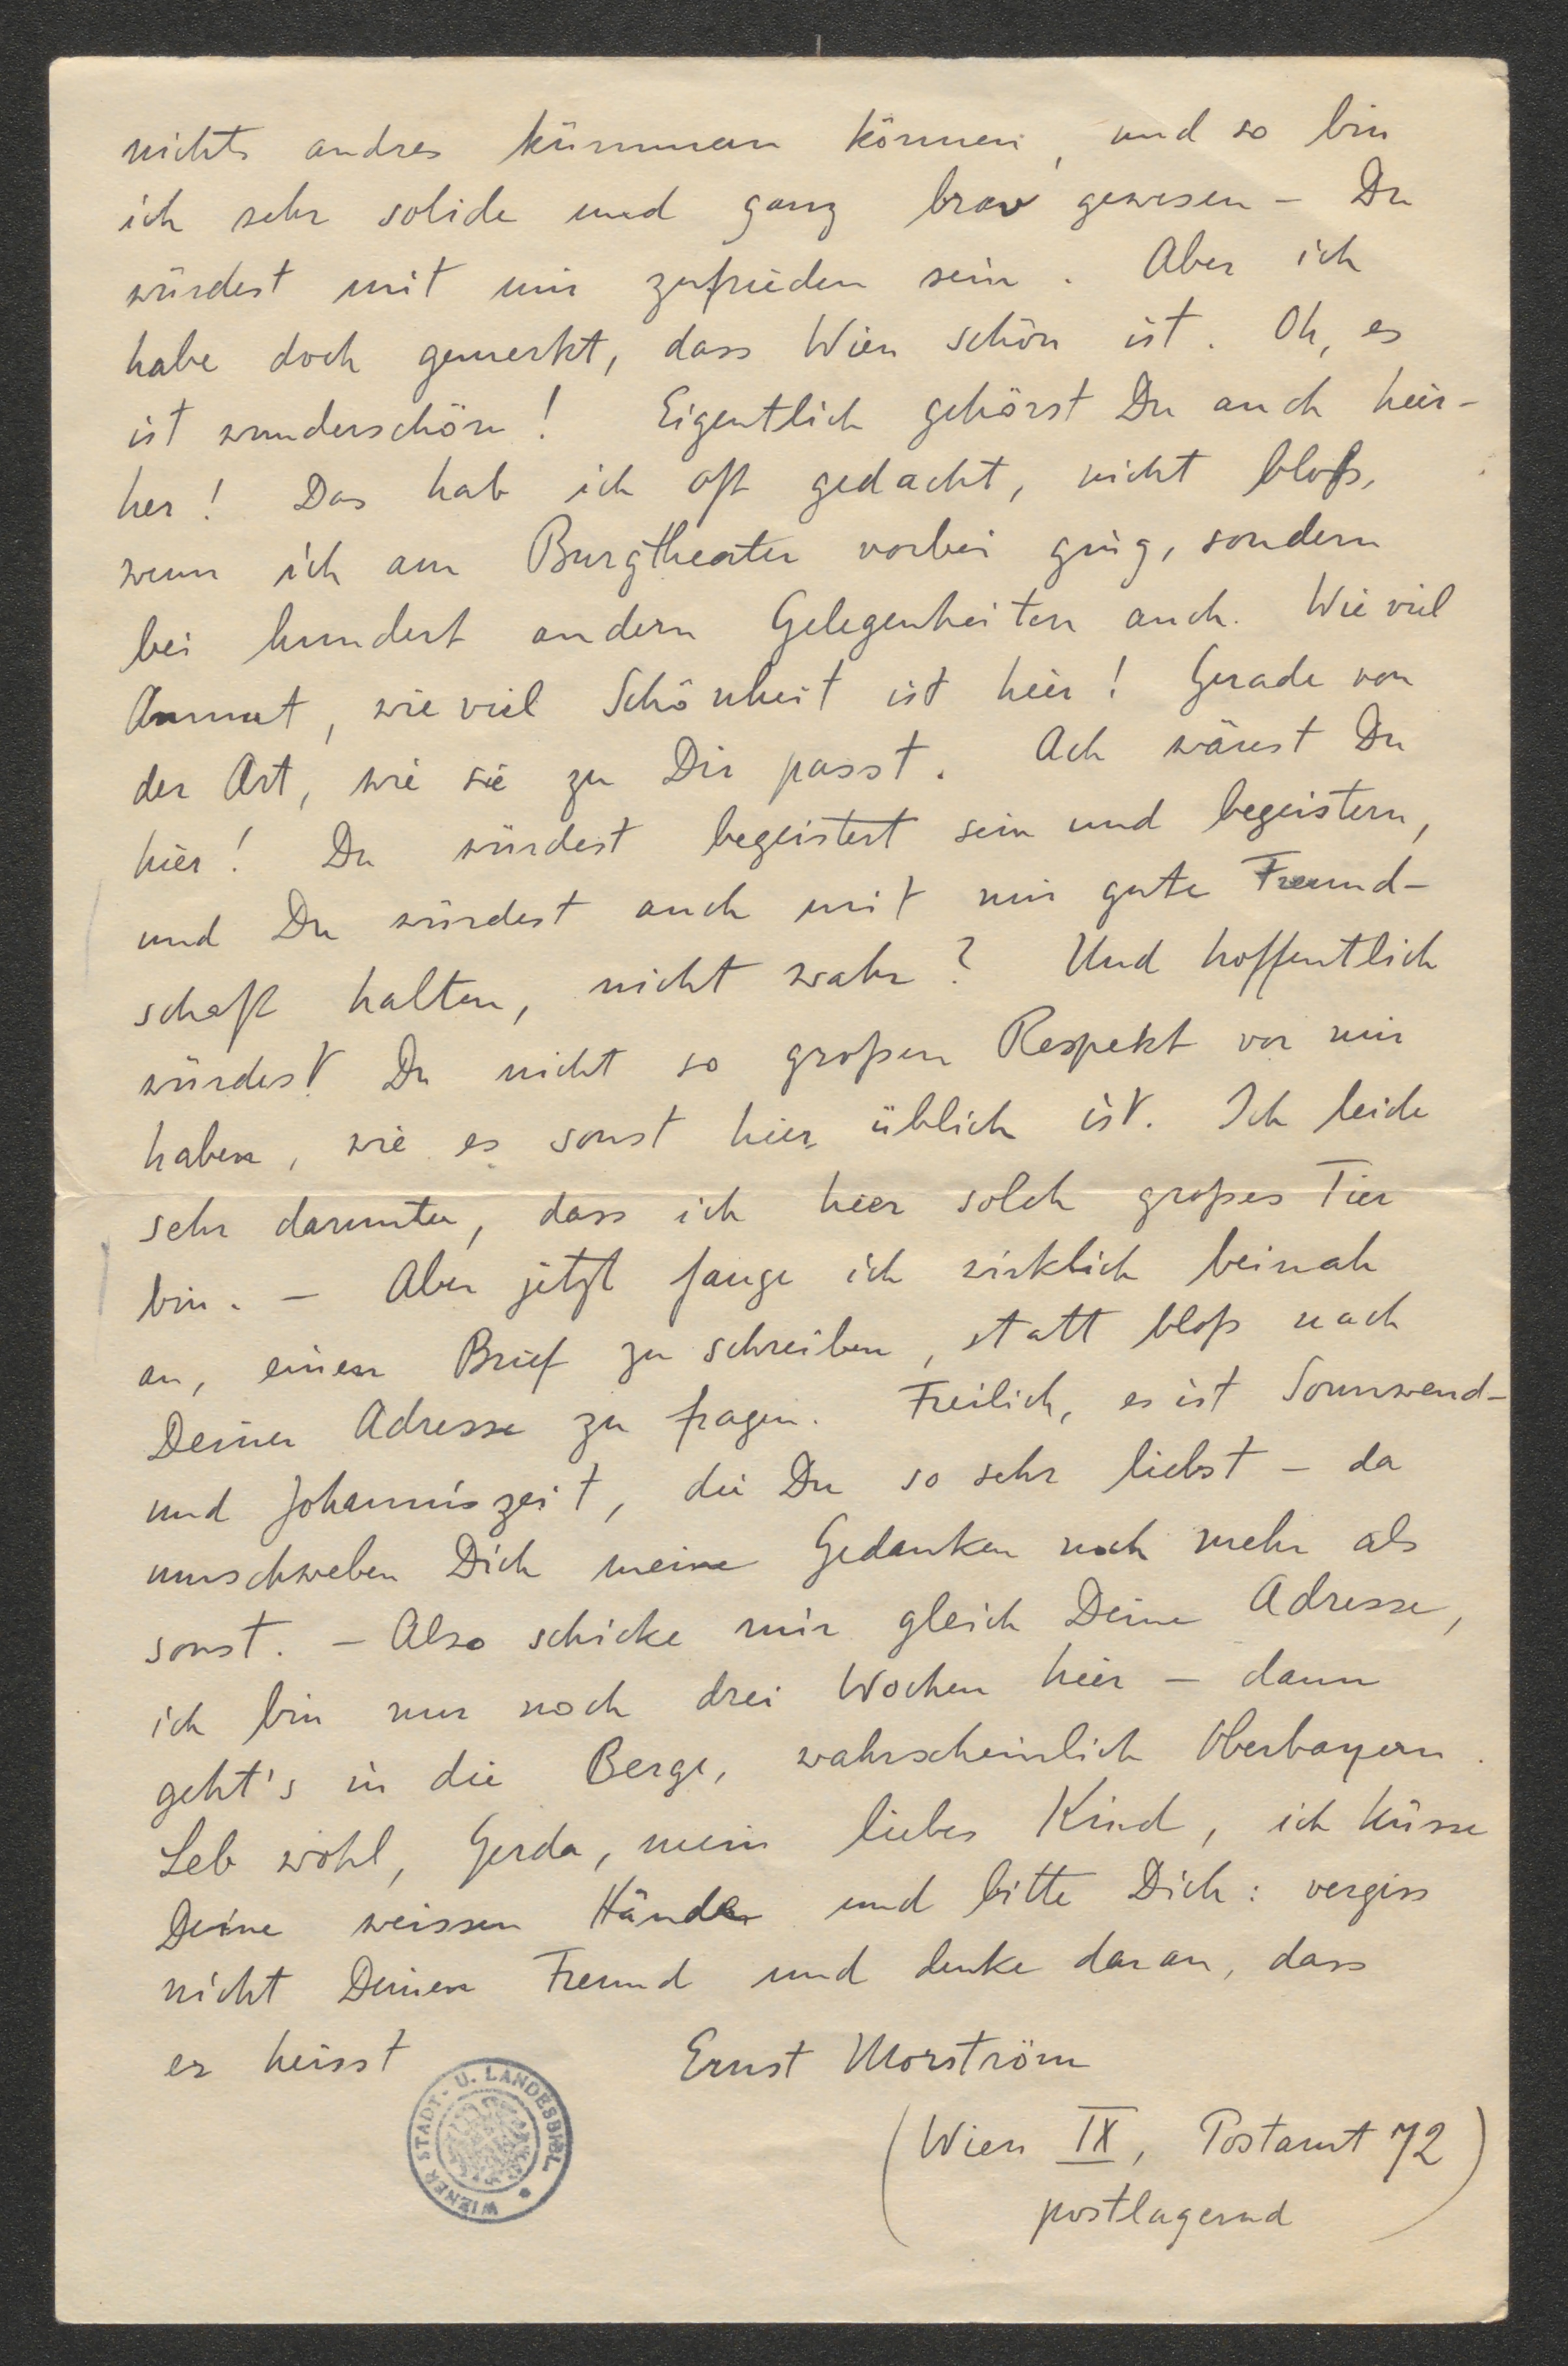 nichts andres kümmern können, und so bin
ich sehr solide und ganz brav gewesen – Du
würdest mit mir zufrieden sein. Aber ich
habe doch gemerkt, dass Wien schön ist. Oh, es
ist wunderschön! Eigentlich gehörst Du auch hier-
her! Das hab ich oft gedacht, nicht bloß,
wenn ich am Burgtheater vorbei ging, sondern
bei hundert andern Gelegenheiten auch. Wie viel
Anmut, wie viel Schönheit ist hier! Gerade von
der Art, wie sie zu Dir passt. Ach wärest Du
hier! Du würdest begeistert sein und begeistern,
und Du würdest auch mit mir gute Freund-
schaft halten, nicht wahr? Und hoffentlich
würdest Du nicht so großen Respekt vor mir
haben, wie es sonst hier üblich ist. Ich leide
sehr darunter, dass ich hier solch großes Tier
bin. – Aber jetzt fange ich wirklich beinah
an, einen Brief zu schreiben, statt bloß nach
Deiner Adresse zu fragen. Freilich, es ist Sonnwend-
und Johanniszeit, die Du so sehr liebst – da
umschweben Dich meine Gedanken noch mehr als
sonst. – Also schicke mir gleich Deine Adresse,
ich bin nur noch drei Wochen hier – dann
geht's in die Berge, wahrscheinlich Oberbayern.
Leb wohl, Gerda, mein liebes Kind, ich küsse
Deine weissen Hände und bitte Dich: vergiss
nicht Deinen Freund und denke daran, dass
er heisst Ernst Morström
(Wien IX, Postamt 72
postlagernd)
WIENER STADT- U. LANDESBIBL.